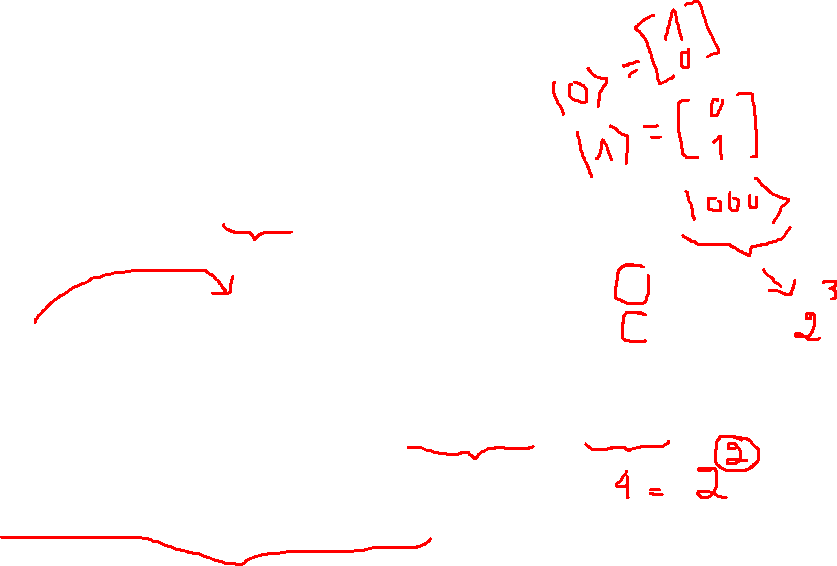 |0⟩ = [1 0]
|1⟩ = [0 1]
|000⟩
2³
4 = 2²